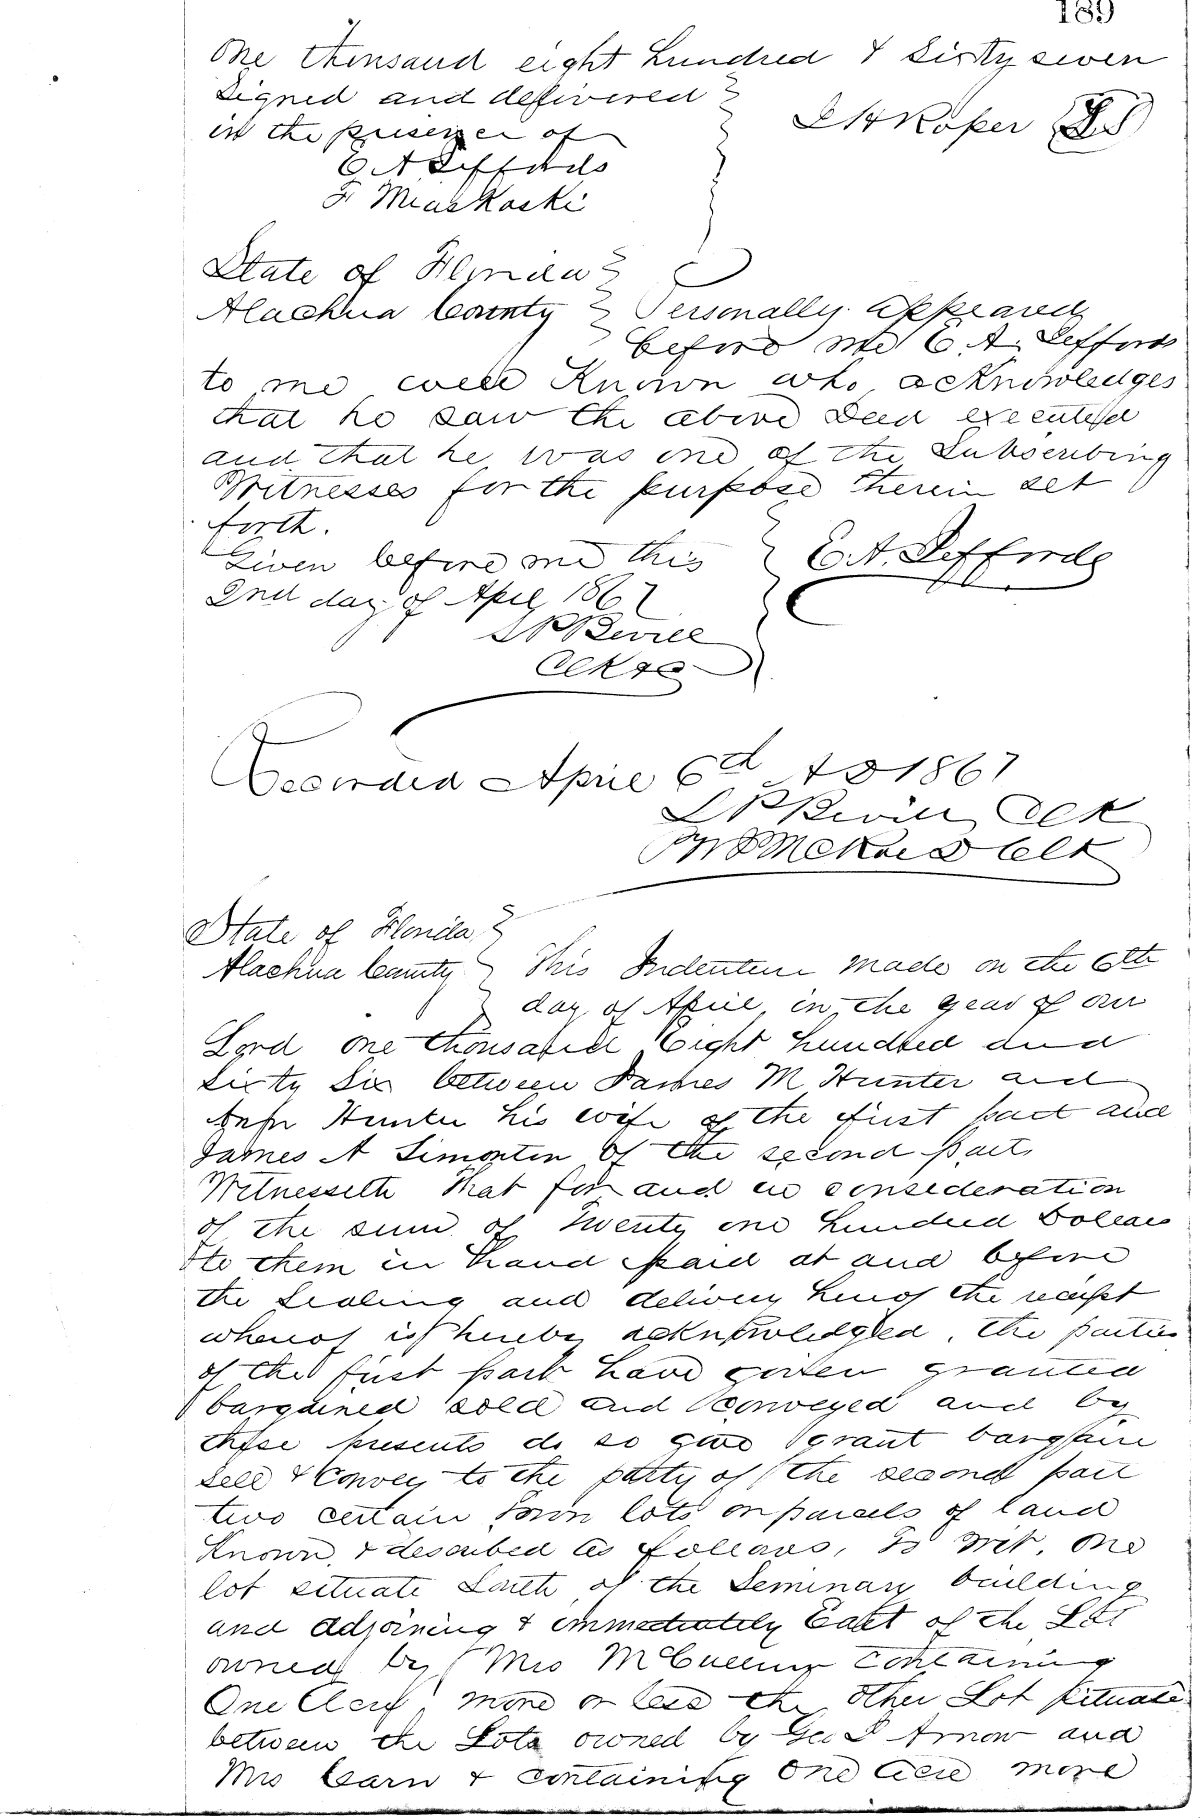 189
One thousand eight hundred & sixty seven
Signed and delivered
in the presence of
S H Roper LS
E A Jeffords
F Miaskoski
State of Florida
Alachua County Personally appeared
before me E. A. Jeffords
to me well Known who acknowledges
that he saw the above Deed executed
and that he was one of the Subscribing
Witnesses for the purpose therein set
forth.
Given before me this E. A. Jeffords
2nd day of April 1867
Clk
Recorded April 6d A D 1867
Clk
D Clk
State of Florida
Alachua County This Indenture made on the 6th
day of April in the year of our
Lord one thousand Eight hundred and
sixty six between James M Hunter and
Hunter his wife of the first part and
James A Simonton of the second part
Witnesseth that for and in consideration
of the sum of Twenty one hundred Dollars
to them in hand paid at and before
the Sealing and delivery hereof the receipt
whereof is hereby acknowledged, the parties
of the first part have given granted
bargained sold and conveyed and by
these presents do so give grant bargain
sell & Convey to the party of the second part
two certain Town lots or parcels of land
Known & described as follows, To wit, One
lot situate South of the Seminary building
and adjoining & immediately East of the Lot
owned by Mrs containing
One Acre more or less the other Lot situate
between the Lots owned by Geo Arnow and
Mrs Carn & containing One Acre more